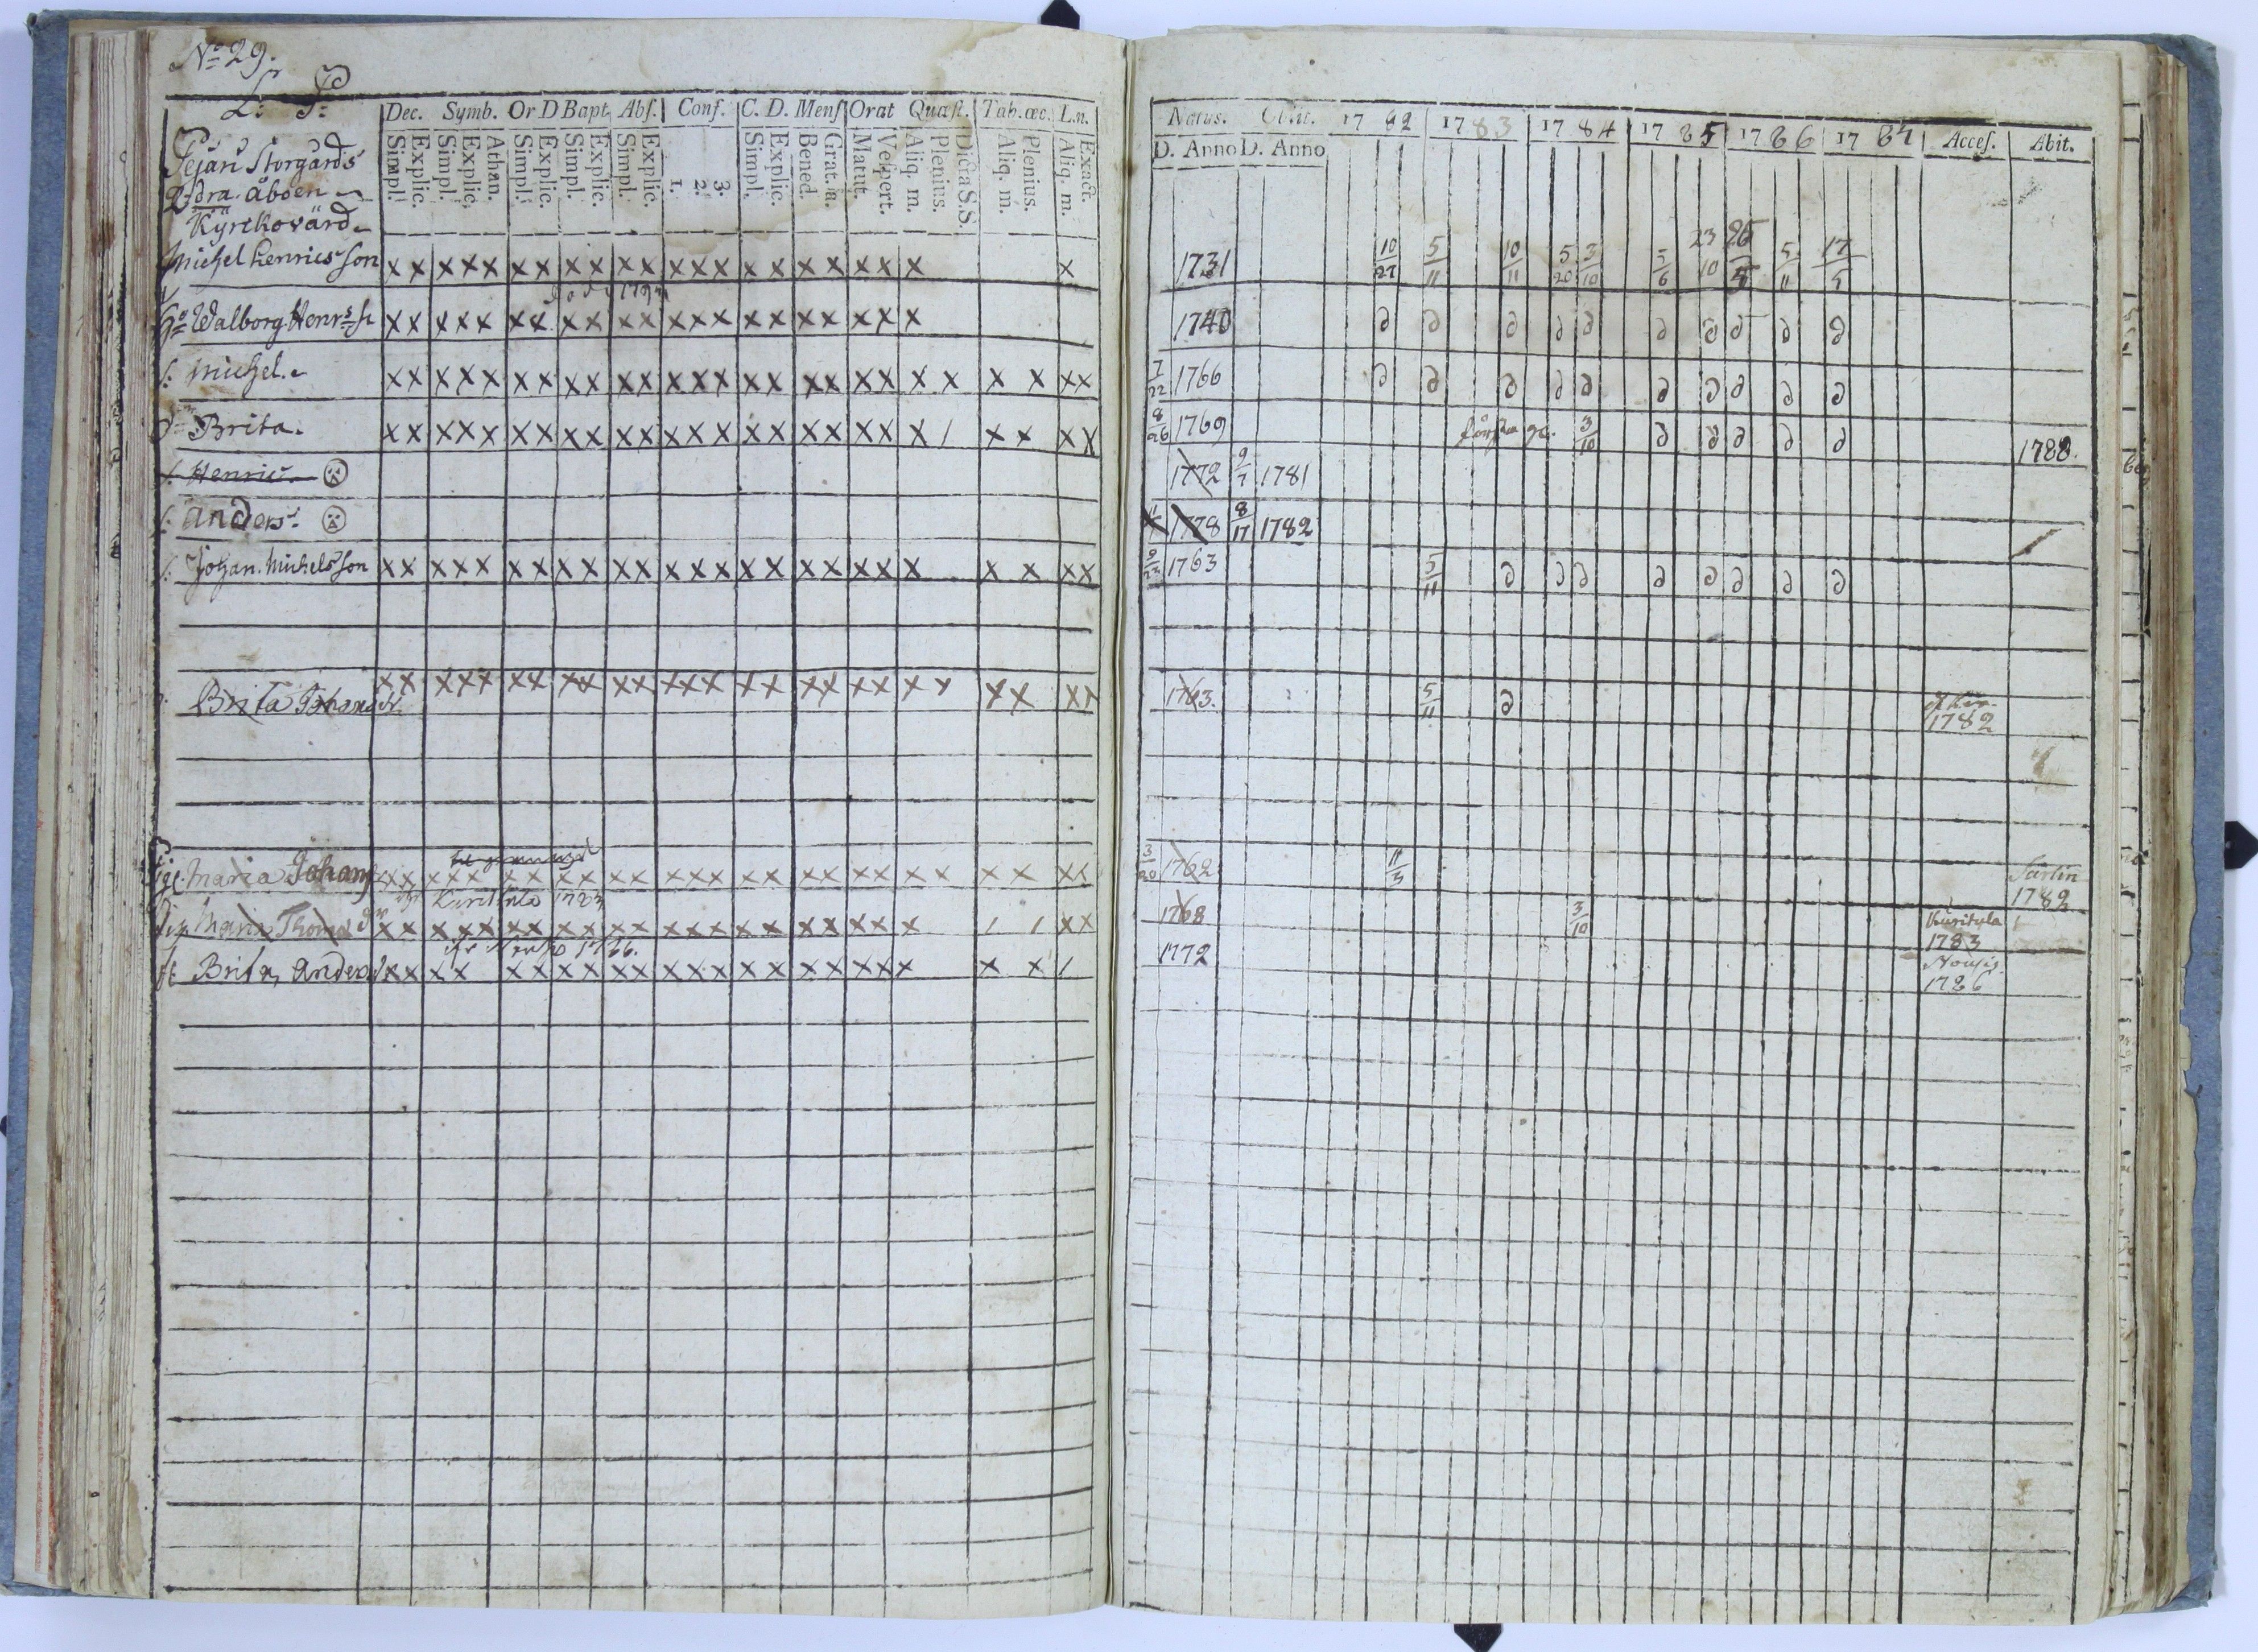 No 29.
L: P:
Dec. Symb. Or D Bapt. Abs. Conf. C. D. Mens Orat Quæst. Tab. œc. L.n.
Simpl. Explic. Simpl. Explic. Athan. Simpl. Explic. Simpl. Explic. Simpl. Explic. 1. 2. 3. Simpl. Explic. Bened. Grat. a. Matut. Vespert. Aliq. m. Plenius. Dicta S.S. Aliq. m. Plenius. Aliq. m. Exact.
Pejan Storgårds
2dra åboen
Kyrckovärd
Michel Henrics son x x x x x x x x x x x x x x x x x x x x x x
Walborg Henrs x x x x x x x x x x x x x x x x x x x x x
s: Michel x x x x x x x x x x x x x x x x x x x x x x x x x x
Brita x x x x x x x x x x x x x x x x x x x x x / x x x x
s: Henric
s: Anders
s: Johan Michels son x x x x x x x x x x x x x x x x x x x x x x x x x
Brita x x x x x x x x x x x x x x x x x x x x x x x x x x
Maria Johans x x x x x x x x x x x x x x x x x x x x x x x x x x
Kuritula 1783
Maria Thoms dr x x x x x x x x x x x x x x x x x x x x x / / x x
Brita Anders x x x x x x x x x x x x x x x x x x x x x x /
Natus. Obit. 1782 1783 1784 1785 1786 1787 Acces. Abit.
D. Anno D. Anno
1731 10/27 5/11 10/11 5/20 3/10 5/6 23/10 5/11 17/5
1740
7/22 1766
8/26 1769 3/10 1788.
1772 9/7 1781
1778 8/17 1782
1763 5/11
1763. 5/11 1782
3/20 1762 11/3 Sarlin
1782
1768 3/10 Kuritula
1783
1772
1786